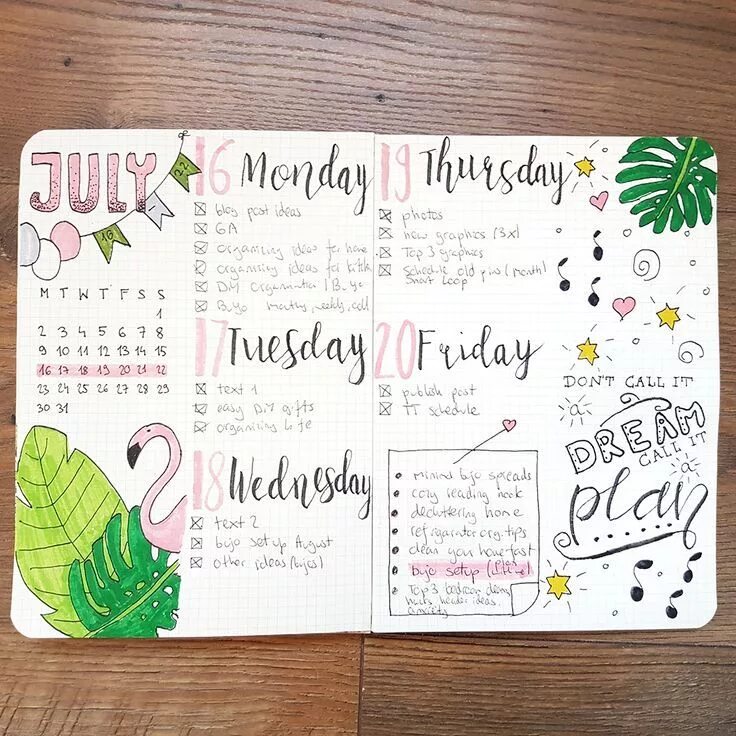 JULY
16
22
M T W T F S S
1
2 3 4 5 6 7 8
9 10 11 12 13 14 15
16 17 18 19 20 21 22
23 24 25 26 27 28 29
30 31
16 Monday
blog post ideas
GA
organizing ideas for home
organizing ideas for
DIY organization | Bujo
Bujo monthly, weekly,
17 Tuesday
text 1
easy DIY gifts
organizing life
18 Wednesday
text 2
bujo set up August
other ideas (bujos)
19 Thursday
photos
new graphics (3x)
Top 3 graphics
schedule old pins (month)
Smart Loop
20 Friday
publish post
TT schedule
minimal bujo spreads
cozy reading nook
decluttering home
refrigerator org. tips
clean your home fast
bujo setup
Top 3 bedroom
hacks, header ideas,
anxiety
DON'T CALL IT
a
DREAM
CALL IT
a
plan